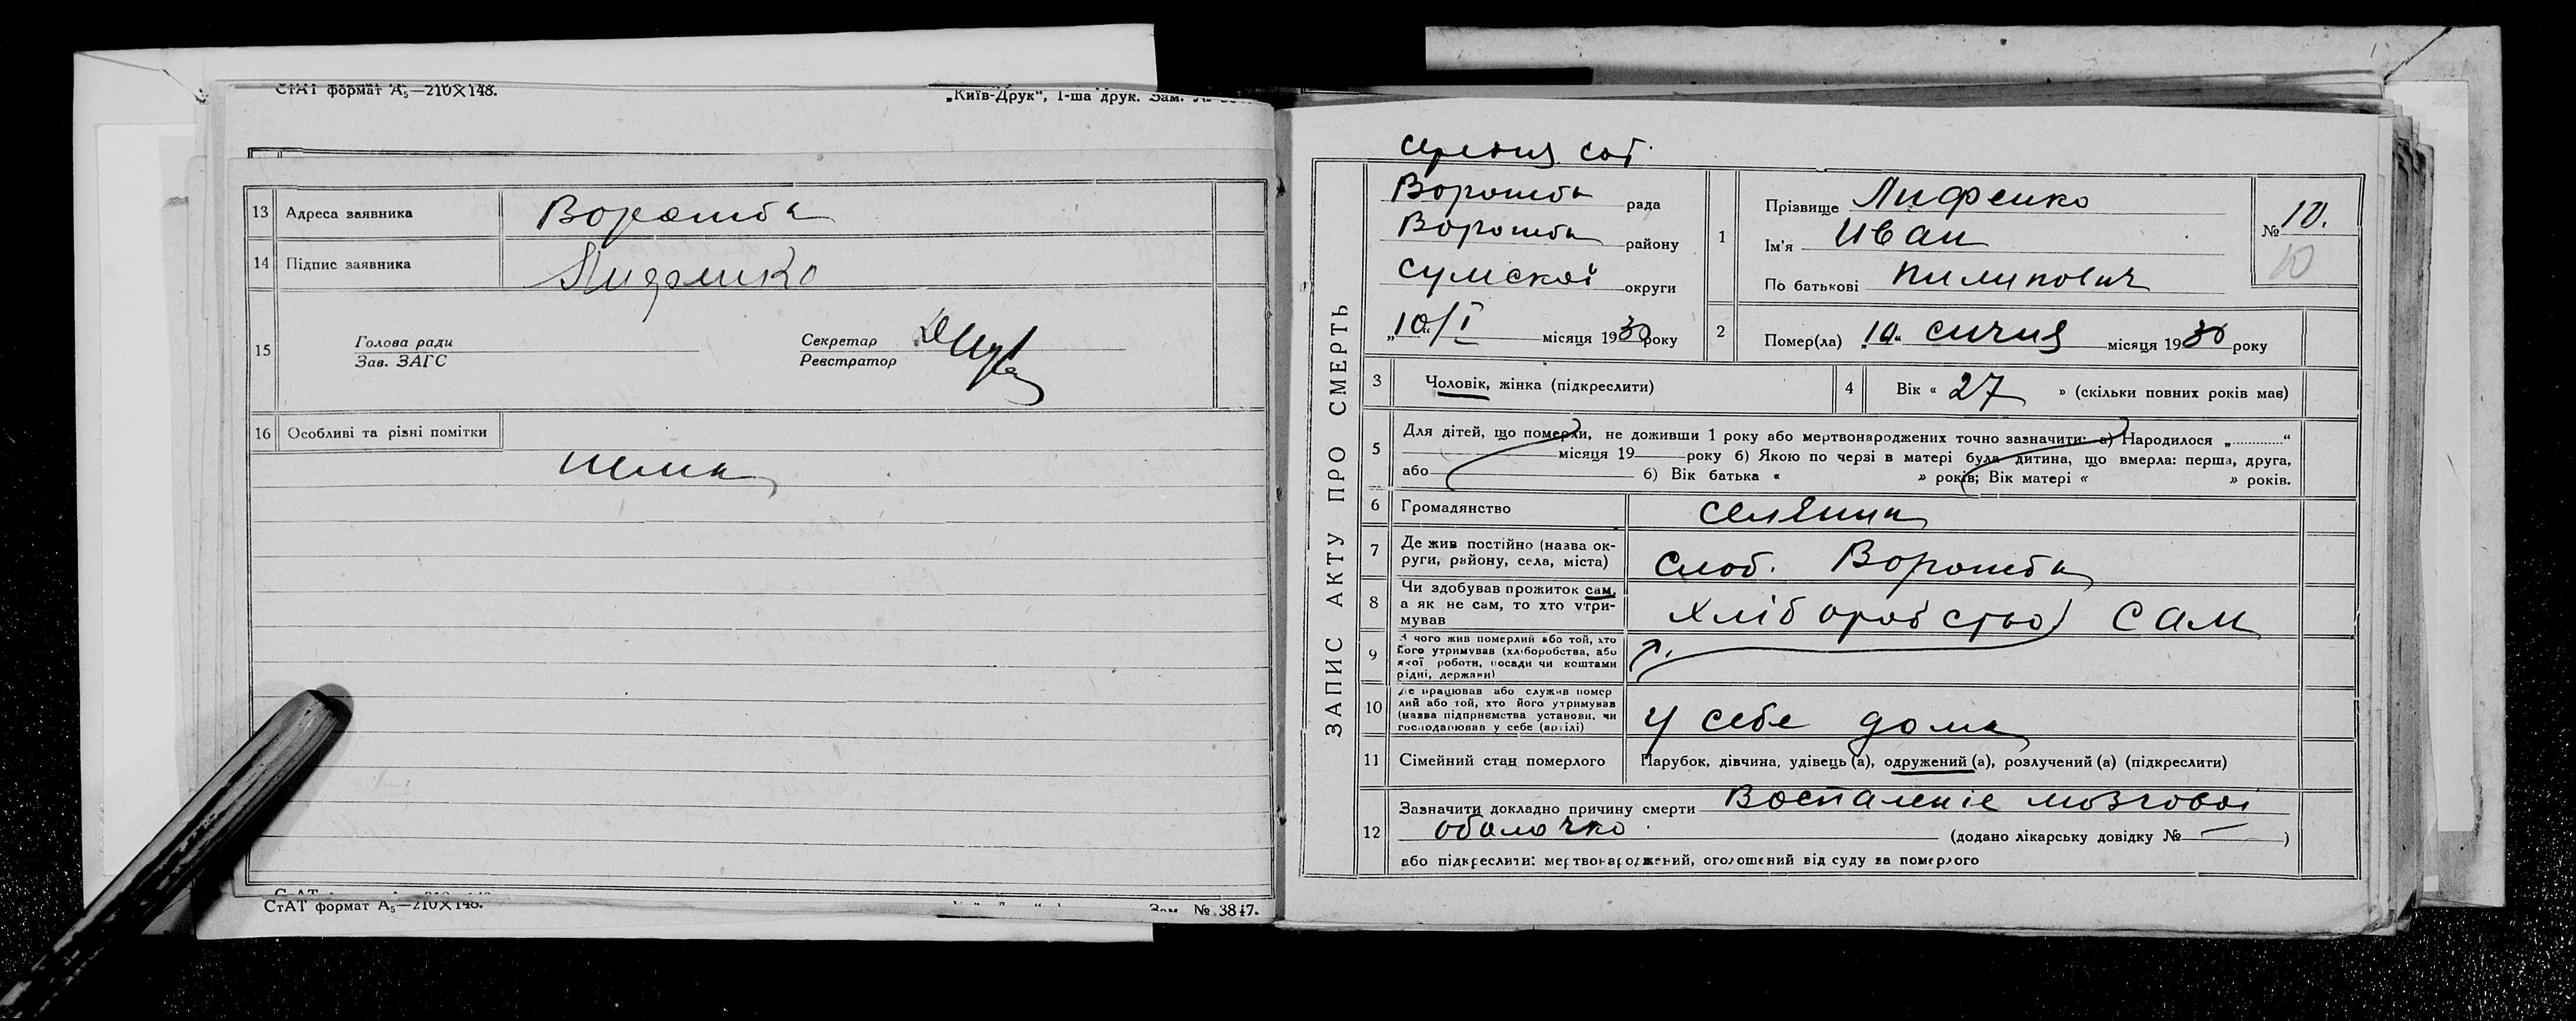 СтАТ формат А₅—210×148.
„Київ-Друк“, 1-ша друк. Зам. №
13 Адреса заявника Ворожба
14 Підпис заявника
15 Голова ради
Зав. ЗАГС
Секретар
Реєстратор
16 Особливі та різні помітки
СтАТ формат А₅—210×148.
Зам. № 3847.
ЗАПИС АКТУ ПРО СМЕРТЬ
Ворожба рада
Ворожба району
Сумской округи
„10“/I місяця 1930 року
1 Прізвище Лифенко
Ім'я Иван
По батькові Пилипович
№ 10.
10
2 Помер(ла) „10“ сичня місяця 1930 року
3 Чоловік, жінка (підкреслити)
4 Вік « 27 » (скільки повних років має)
5 Для дітей, що померли, не доживши 1 року або мертвонароджених точно зазначити: а) Народилося „............“
місяця 19 року б) Якою по черзі в матері була дитина, що вмерла: перша, друга,
або б) Вік батька « » років; Вік матері « » років.
6 Громадянство селянин
7 Де жив постійно (назва ок-
руги, району, села, міста) Слоб. Ворожба
8 Чи здобував прожиток сам,
а як не сам, то хто утри-
мував хліборобство) сам
9 З чого жив померлий або той, хто
його утримував (хліборобства, або
якої роботи, посади чи коштами
рідні, держави)
10 Де працював або служив помер
лий або той, хто його утримував
(назва підприємства установи, чи
господарював у себе (артілі) У себе дома
11 Сімейний стан померлого Парубок, дівчина, удівець (а), одружений (а), розлучений (а) (підкреслити)
12 Зазначити докладно причину смерти Воспаленіе мозговоі
оболочко (додано лікарську довідку № — )
або підкреслити: мертвонароджений, оголошений від суду за померлого